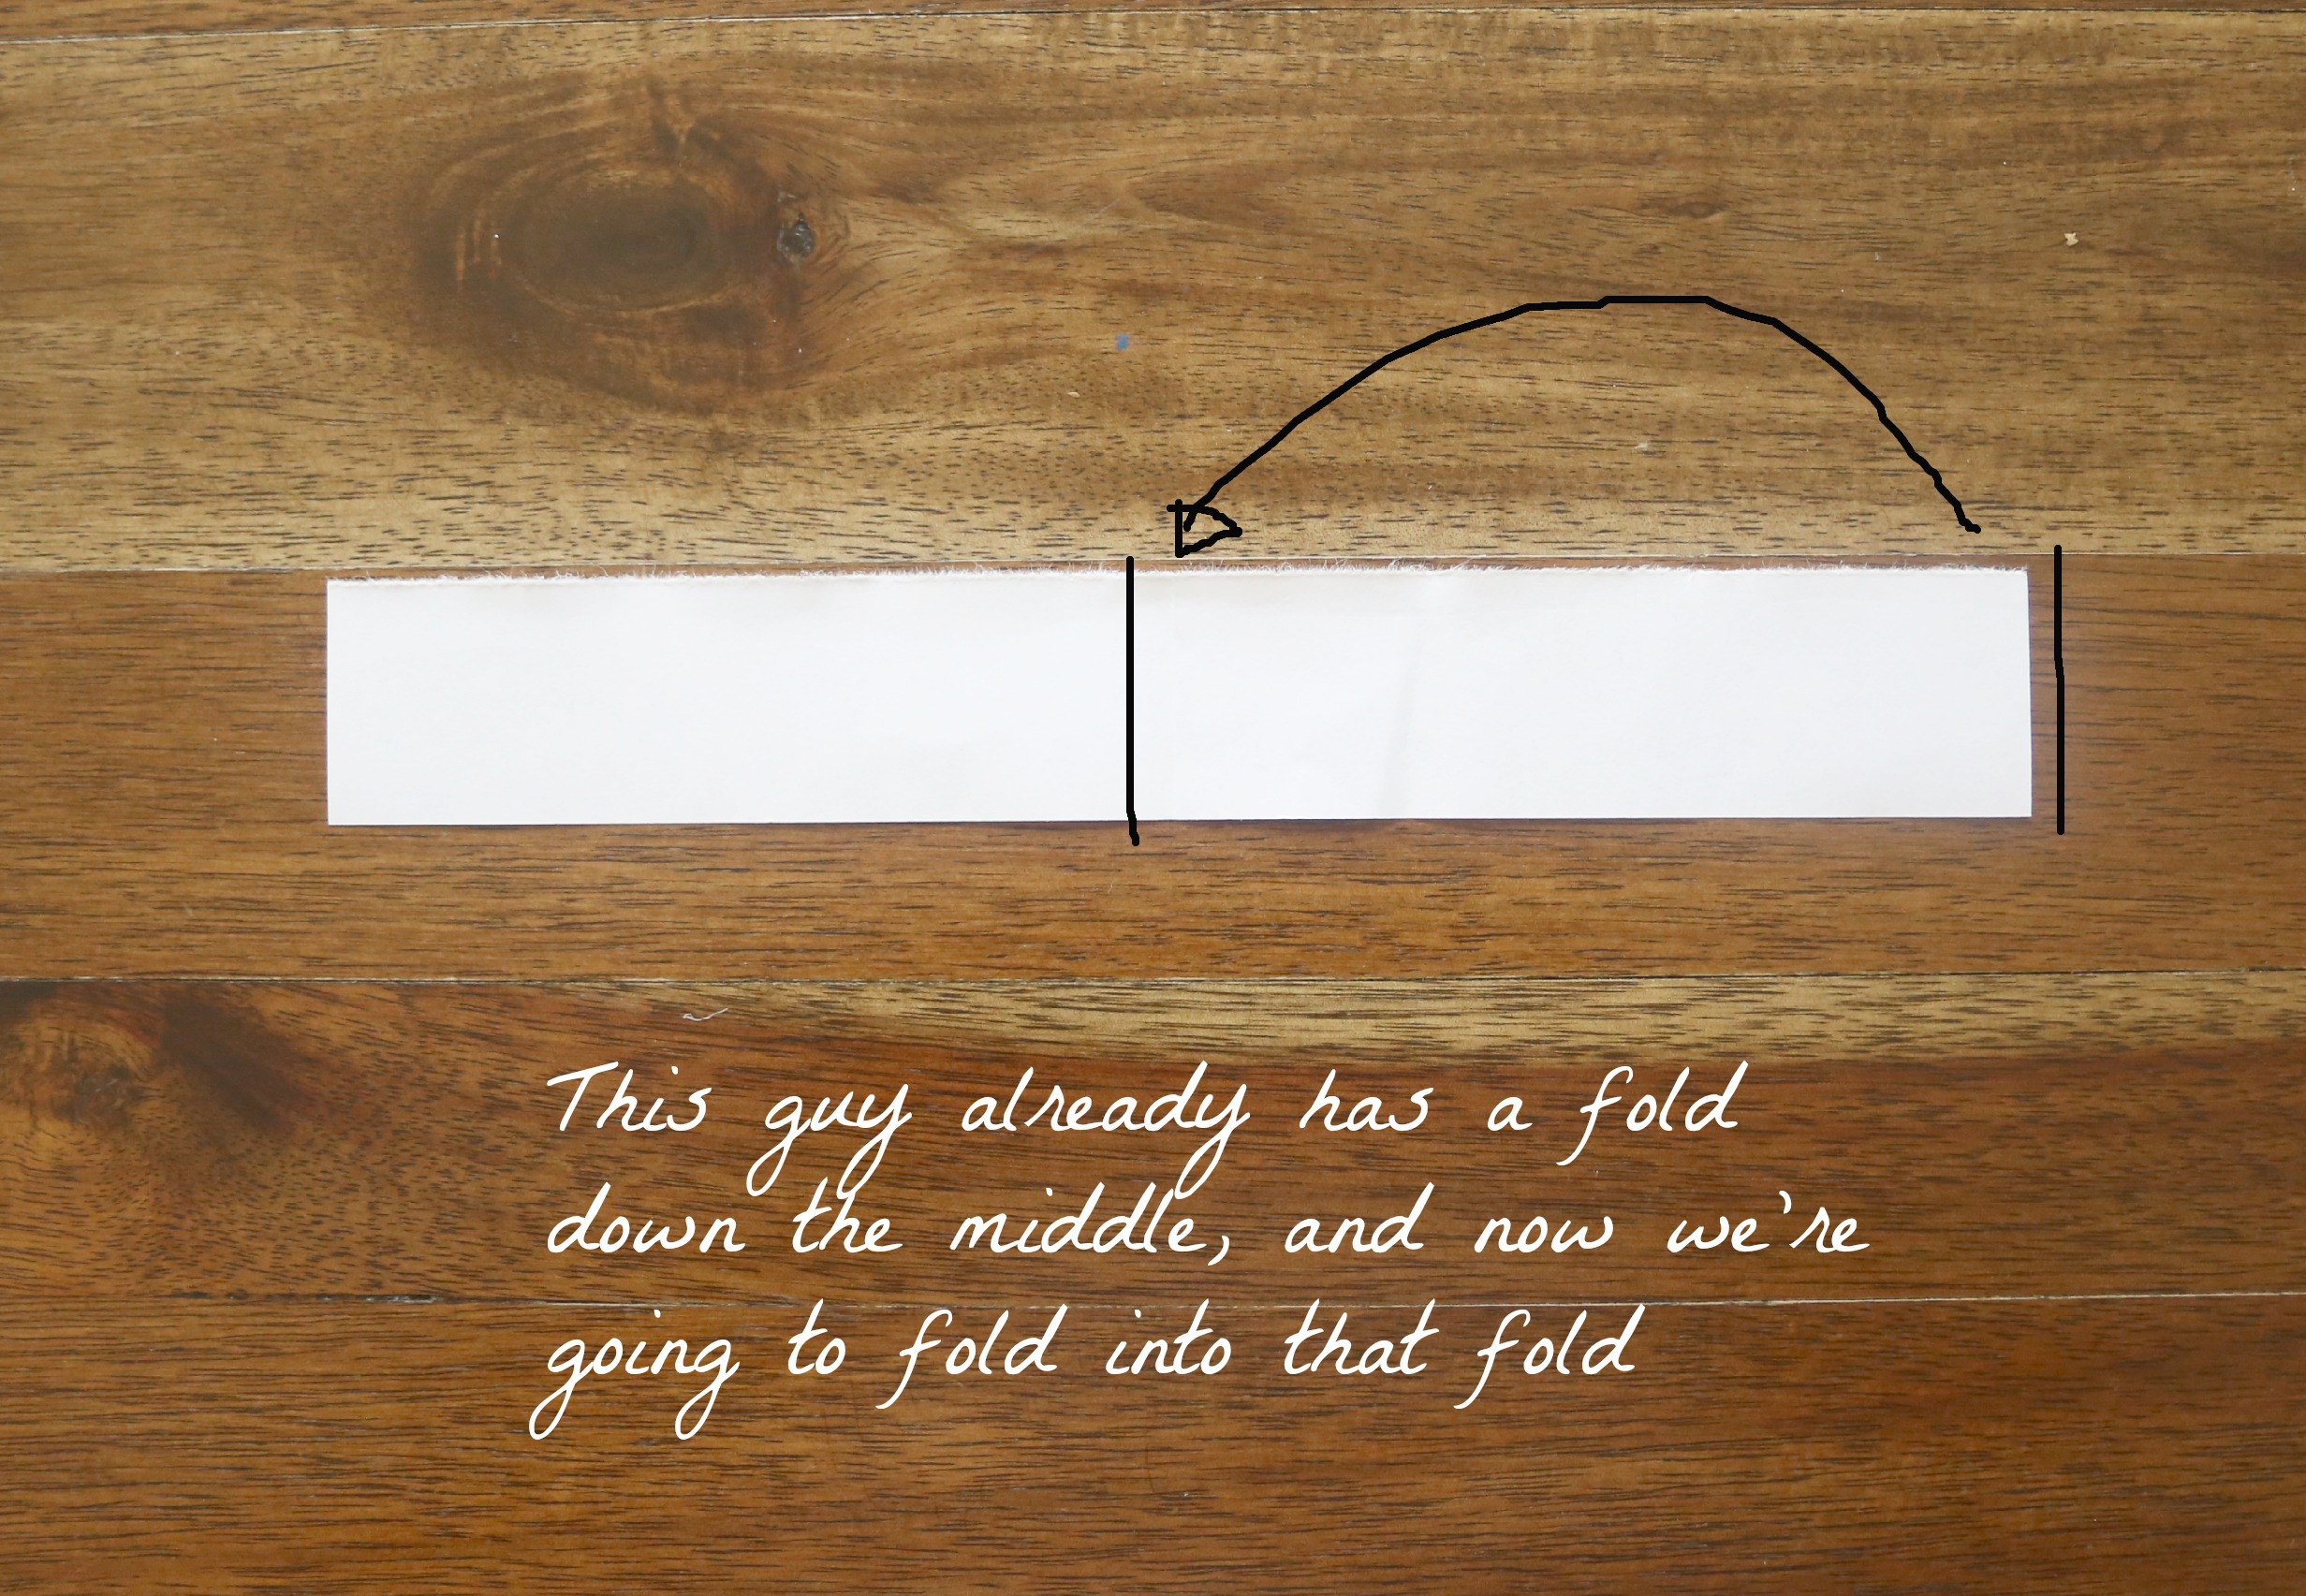 This guy already has a fold
down the middle, and now we're
going to fold into that fold